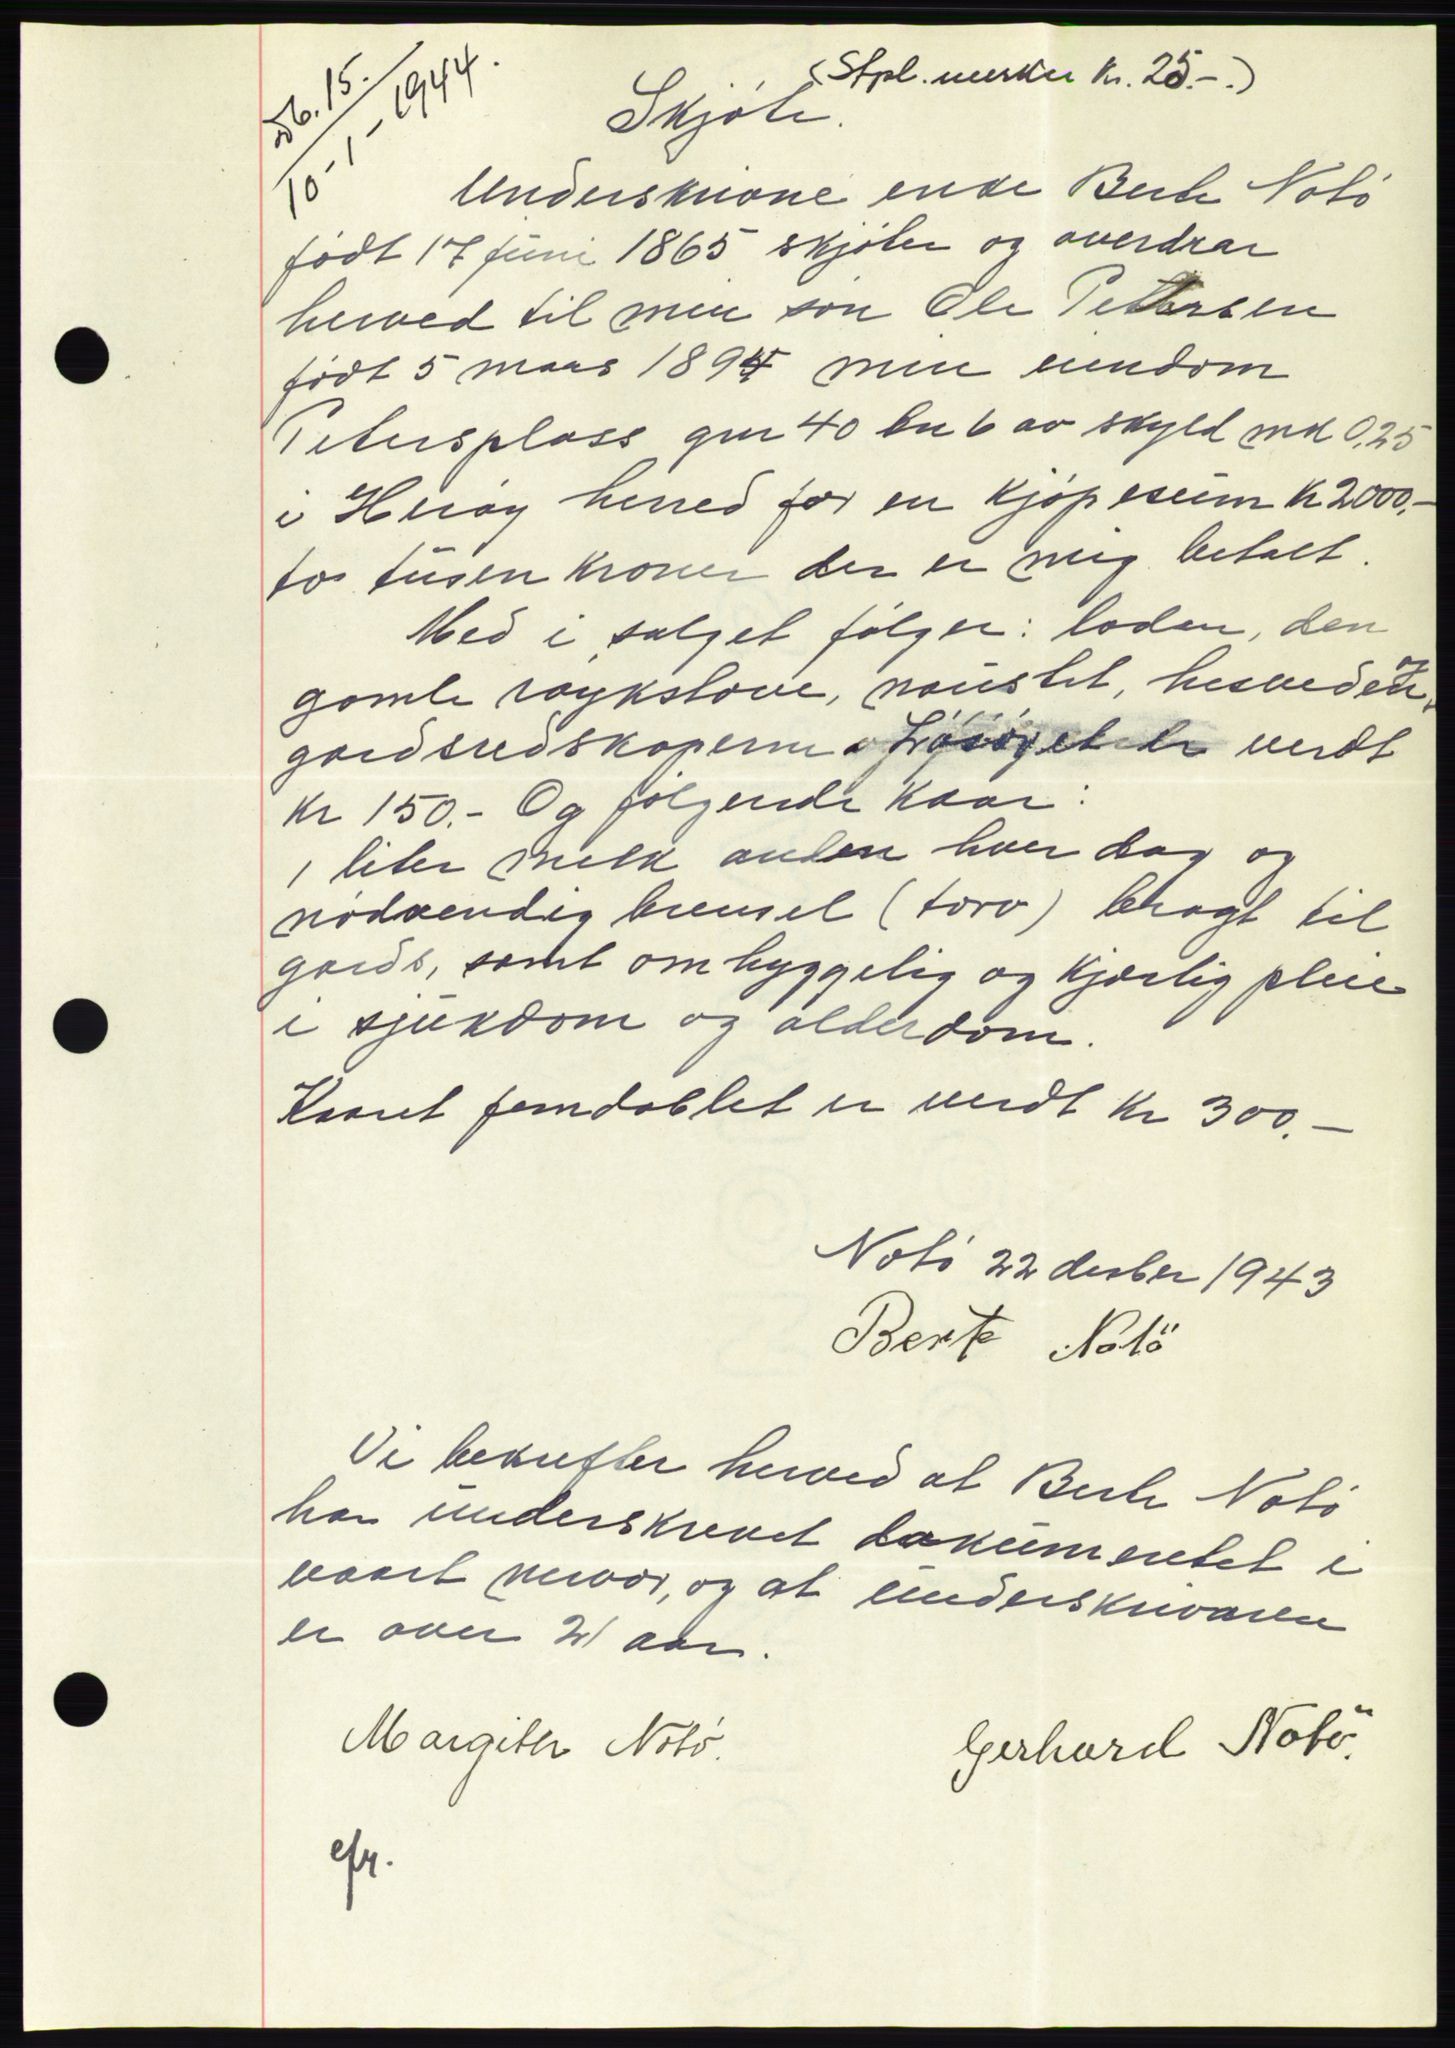 Db. 15.
10-1-1944.
(Stpl. merker kr. 25.-.)
Skjöte.
Underskrivne enke Berte Notö
født 17 juni 1865 skjöter og overdrar
herved til min sön Ole Pettersen
født 5 mars 1894 min eiendom
Petersplass gnr 40 bn 6 av skyld mk 0,25
i Heröy herred for en kjöpesum kr 2000,-
to tusen kroner der er mig betalt.
Med i salget fölger: loden, den
gamle röykstove, naustet, hesveden og
gardsredskaperne. Lösöret er verdt
kr 150.- Og fölgende kaar:
1 liter melk anden hver dag og
nödvendig brensel (torv) bragt til
gards, samt omhyggelig og kjærlig pleie
i sjukdom og alderdom.
Kaaret femdoblet er verdt kr 300.-
Notö 22 desber 1943
Berte Notö
Vi bekrefter herved at Berte Notö
har underskrevet dokumentet i
vaart nervær, og at underskriveren
er over 21 aar.
Margithe Notö.
Gerhard Notö.
efr.